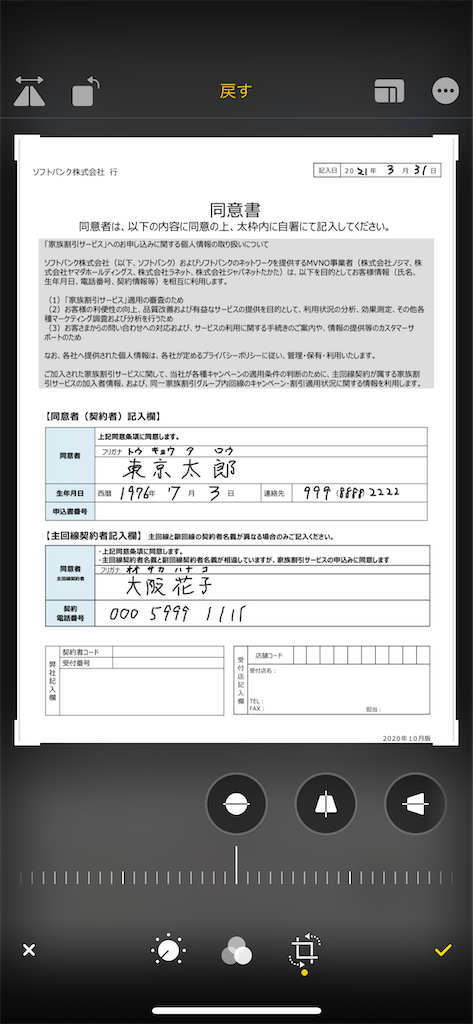 戻す
ソフトバンク株式会社 行
記入日 2021年 3月31日
同意書
同意者は、以下の内容に同意の上、太枠内に自署にて記入してください。
「家族割引サービス」へのお申し込みに関する個人情報の取り扱いについて
ソフトバンク株式会社（以下、ソフトバンク）およびソフトバンクのネットワークを提供するMVNO事業者（株式会社ノジマ、株
式会社ヤマダホールディングス、株式会社ラネット、株式会社ジャパネットたかた）は、以下を目的としてお客様情報（氏名、
生年月日、電話番号、契約情報等）を相互に利用します。
（1）「家族割引サービス」適用の審査のため
（2）お客様の利便性の向上、品質改善および有益なサービスの提供を目的として、利用状況の分析、効果測定、その他各
種マーケティング調査および分析を行うため
（3）お客さまからの問い合わせへの対応および、サービスの利用に関する手続きのご案内や、情報の提供等のカスタマーサ
ポートのため
なお、各社へ提供された個人情報は、各社が定めるプライバシーポリシーに従い、管理・保有・利用いたします。
ご加入された家族割引サービスに関して、当社が各種キャンペーンの適用条件の判断のために、主回線契約が属する家族割
引サービスの加入者情報、および、同一家族割引グループ内回線のキャンペーン・割引適用状況に関する情報を利用します。
【同意者（契約者）記入欄】
上記同意条項に同意します。
同意者
フリガナ トウ キョウ タ ロウ
東京太郎
生年月日 西暦 1976年 7月 3日 連絡先 999 8888 2222
申込書番号
【主回線契約者記入欄】 主回線と副回線の契約者名義が異なる場合のみご記入ください。
・上記同意条項に同意します。
・主回線契約者名義と副回線契約者名義が相違していますが、家族割引サービスの申込みに同意します
同意者
主回線契約者
フリガナ オオ サカ ハナ コ
大阪花子
契約
電話番号
000 5999 1111
弊社記入欄
契約者コード
受付番号
受付店記入欄
店舗コード
受付店名：
TEL：
FAX： 担当：
2020年10月版